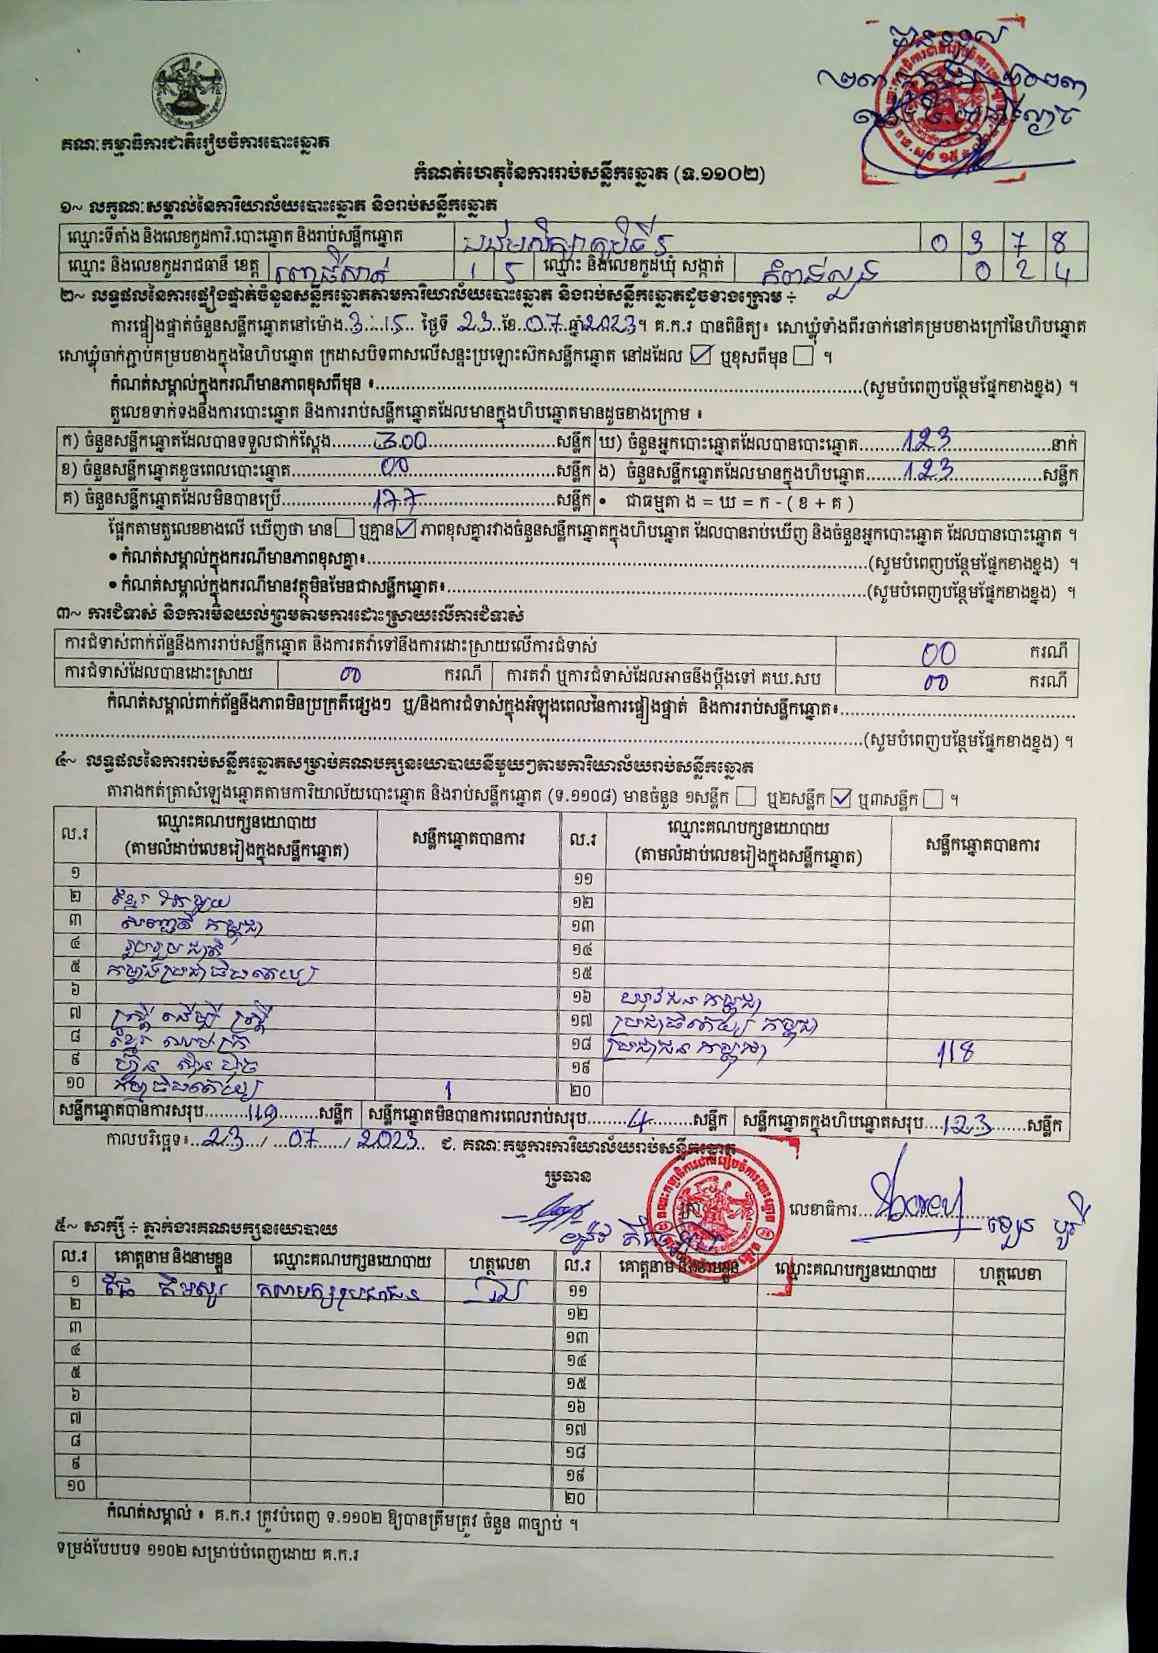 គណៈកម្មាធិការជាតិរៀបចំការបោះឆ្នោត
កំណត់ហេតុនៃការរាប់សន្លឹកឆ្នោត (ទ.១១០២)
១~ លក្ខណៈសម្គាល់នៃការិយាល័យបោះឆ្នោត និងរាប់សន្លឹកឆ្នោត
ឈ្មោះទីតាំង និងលេខកូដការិ.បោះឆ្នោត និងរាប់សន្លឹកឆ្នោត 0 3 7 8
ឈ្មោះ និងលេខកូដរាជធានី ខេត្ត ពោធិ៍សាត់ 1 5 ឈ្មោះ និងលេខកូដឃុំ សង្កាត់ កំពង់លួង 0 2 4
២~ លទ្ធផលនៃការផ្ទៀងផ្ទាត់ចំនួនសន្លឹកឆ្នោតតាមការិយាល័យបោះឆ្នោត និងរាប់សន្លឹកឆ្នោតដូចខាងក្រោម ÷
ការផ្ទៀងផ្ទាត់ចំនួនសន្លឹកឆ្នោតនៅម៉ោង 3:15 ថ្ងៃទី 23 ខែ 07 ឆ្នាំ 2023។ គ.ក.រ បានពិនិត្យ៖ សោឃ្លុំទាំងពីរធាក់នៅគម្របខាងក្រៅនៃហិបឆ្នោត
សោឃ្លុំធាក់ភ្ជាប់គម្របខាងក្នុងនៃហិបឆ្នោត ក្រដាសបិទពាសលើសន្ទះប្រឡោះស៊កសន្លឹកឆ្នោត នៅដដែល ☑ ឬខុសពីមុន ☐ ។
កំណត់សម្គាល់ក្នុងករណីមានភាពខុសពីមុន ៖........(សូមបំពេញបន្ថែមផ្នែកខាងខ្នង) ។
តួលេខទាក់ទងនឹងការបោះឆ្នោត និងការរាប់សន្លឹកឆ្នោតដែលមានក្នុងហិបឆ្នោតមានដូចខាងក្រោម ៖
ក) ចំនួនសន្លឹកឆ្នោតដែលបានទទួលជាក់ស្តែង 300 សន្លឹក ឃ) ចំនួនអ្នកបោះឆ្នោតដែលបានបោះឆ្នោត 123 នាក់
ខ) ចំនួនសន្លឹកឆ្នោតខូចពេលបោះឆ្នោត 00 សន្លឹក ង) ចំនួនសន្លឹកឆ្នោតដែលមានក្នុងហិបឆ្នោត 123 សន្លឹក
គ) ចំនួនសន្លឹកឆ្នោតដែលមិនបានប្រើ 177 សន្លឹក • ជាធម្មតា ង = ឃ = ក - ( ខ + គ )
ផ្អែកតាមតួលេខខាងលើ ឃើញថា មាន ☐ ឬគ្មាន ☑ ភាពខុសគ្នារវាងចំនួនសន្លឹកឆ្នោតក្នុងហិបឆ្នោត ដែលបានរាប់ឃើញ និងចំនួនអ្នកបោះឆ្នោត ដែលបានបោះឆ្នោត ។
• កំណត់សម្គាល់ក្នុងករណីមានភាពខុសគ្នា៖........(សូមបំពេញបន្ថែមផ្នែកខាងខ្នង) ។
• កំណត់សម្គាល់ក្នុងករណីមានវត្ថុមិនមែនជាសន្លឹកឆ្នោត៖........(សូមបំពេញបន្ថែមផ្នែកខាងខ្នង) ។
៣~ ការជំទាស់ និងការមិនយល់ព្រមតាមការដោះស្រាយលើការជំទាស់
ការជំទាស់ពាក់ព័ន្ធនឹងការរាប់សន្លឹកឆ្នោត និងការតវ៉ាទៅនឹងការដោះស្រាយលើការជំទាស់ 00 ករណី
ការជំទាស់ដែលបានដោះស្រាយ 00 ករណី ការតវ៉ា ឬការជំទាស់ដែលអាចនឹងប្តឹងទៅ គឃ.សប 00 ករណី
កំណត់សម្គាល់ពាក់ព័ន្ធនឹងភាពមិនប្រក្រតីផ្សេងៗ ឬ/និងការជំទាស់ក្នុងអំឡុងពេលនៃការផ្ទៀងផ្ទាត់ និងការរាប់សន្លឹកឆ្នោត៖........
........(សូមបំពេញបន្ថែមផ្នែកខាងខ្នង) ។
៤~ លទ្ធផលនៃការរាប់សន្លឹកឆ្នោតសម្រាប់គណបក្សនយោបាយនីមួយៗតាមការិយាល័យរាប់សន្លឹកឆ្នោត
តារាងកត់ត្រាសំឡេងឆ្នោតតាមការិយាល័យបោះឆ្នោត និងរាប់សន្លឹកឆ្នោត (ទ.១១០៨) មានចំនួន ១សន្លឹក ☐ ឬ២សន្លឹក ☑ ឬ៣សន្លឹក ☐ ។
ល.រ ឈ្មោះគណបក្សនយោបាយ (តាមលំដាប់លេខរៀងក្នុងសន្លឹកឆ្នោត) សន្លឹកឆ្នោតបានការ ល.រ ឈ្មោះគណបក្សនយោបាយ (តាមលំដាប់លេខរៀងក្នុងសន្លឹកឆ្នោត) សន្លឹកឆ្នោតបានការ
១ ១១
២ ១២
៣ ១៣
៤ ១៤
៥ ១៥
៦ ១៦ យុវជន កម្ពុជា
៧ ស្ត្រី ដើម្បី ស្ត្រី ១៧ ប្រជាធិបតេយ្យ កម្ពុជា
៨ ខ្មែរ ឈប់ក្រ ១៨ ប្រជាជន កម្ពុជា 118
៩ ១៩
១០ 1 ២០
សន្លឹកឆ្នោតបានការសរុប 119 សន្លឹក សន្លឹកឆ្នោតមិនបានការពេលរាប់សរុប 4 សន្លឹក សន្លឹកឆ្នោតក្នុងហិបឆ្នោតសរុប 123 សន្លឹក
កាលបរិច្ឆេទ៖ 23 / 07 / 2023 ជ. គណៈកម្មការការិយាល័យរាប់សន្លឹកឆ្នោត
ប្រធាន
លេខាធិការ
៥~ សាក្សី ÷ ភ្នាក់ងារគណបក្សនយោបាយ
ល.រ គោត្តនាម និងនាមខ្លួន ឈ្មោះគណបក្សនយោបាយ ហត្ថលេខា ល.រ គោត្តនាម និងនាមខ្លួន ឈ្មោះគណបក្សនយោបាយ ហត្ថលេខា
១ គណបក្សប្រជាជន ១១
២ ១២
៣ ១៣
៤ ១៤
៥ ១៥
៦ ១៦
៧ ១៧
៨ ១៨
៩ ១៩
១០ ២០
កំណត់សម្គាល់ ៖ គ.ក.រ ត្រូវបំពេញ ទ.១១០២ ឱ្យបានត្រឹមត្រូវ ចំនួន ៣ច្បាប់ ។
ទម្រង់បែបបទ ១១០២ សម្រាប់បំពេញដោយ គ.ក.រ